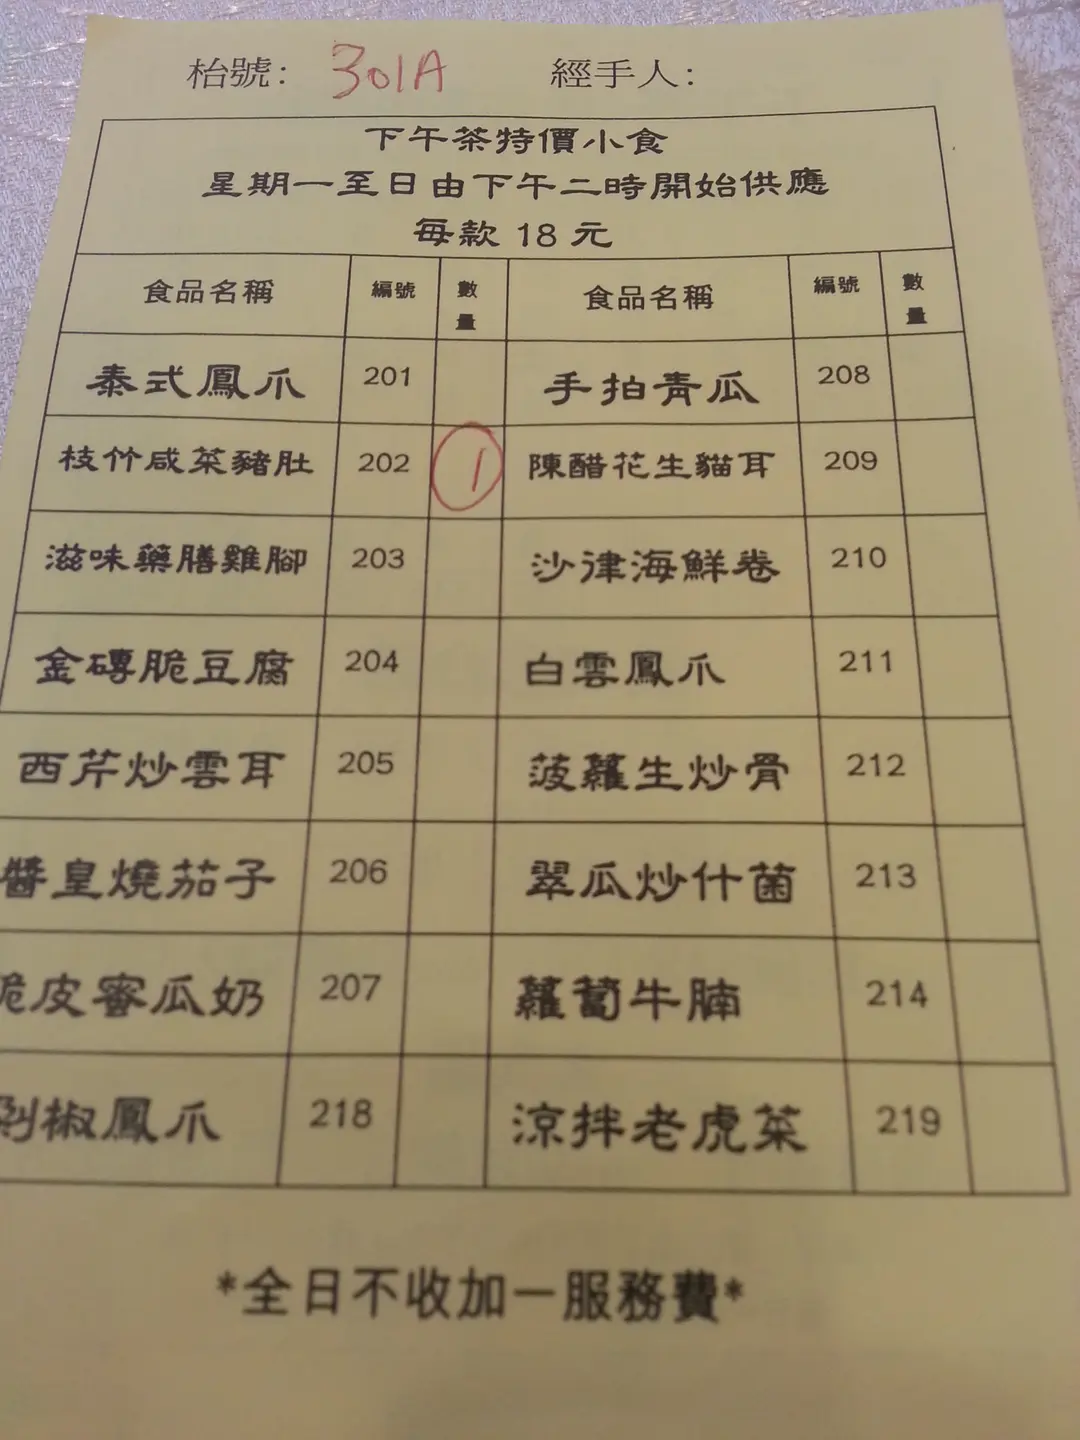 枱號： 301A 經手人：
下午茶特價小食
星期一至日由下午二時開始供應
每款 18 元
食品名稱 編號 數量 食品名稱 編號 數量
泰式鳳爪 201 手拍青瓜 208
枝竹咸菜豬肚 202 1 陳醋花生貓耳 209
滋味藥膳雞腳 203 沙律海鮮卷 210
金磚脆豆腐 204 白雲鳳爪 211
西芹炒雲耳 205 菠蘿生炒骨 212
醬皇燒茄子 206 翠瓜炒什菌 213
脆皮蜜瓜奶 207 蘿蔔牛腩 214
剁椒鳳爪 218 涼拌老虎菜 219
*全日不收加一服務費*